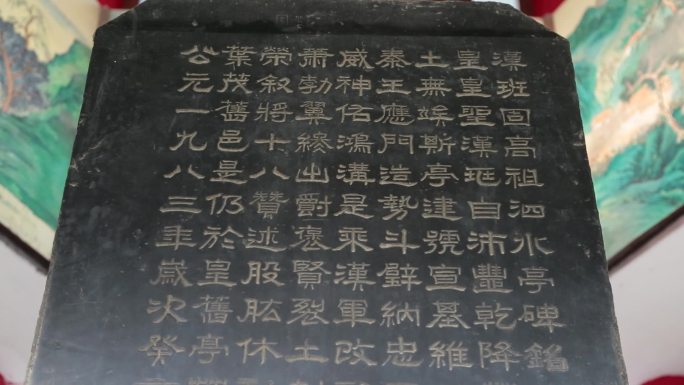 漢班固高祖泗水亭碑銘
皇皇聖漢兆自沛豐乾降
土無竢斯亭建號宣基維
秦王應門造勢斗璧納忠
威神佑鴻溝是乘漢軍改
蕭勃翼終出爵褒賢裂土
榮叙將十八贊述股肱休
葉茂舊邑是仍於皇舊亭
公元一九八三年歲次癸